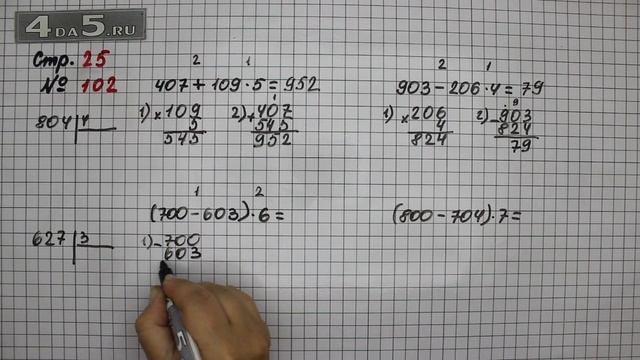 4DA5.RU
Стр. 25
№ 102
2 1
407 + 109 · 5 = 952
1) × 109
5
545
2) + 407
545
952
2 1
903 - 206 · 4 = 79
1) × 206
4
824
2) - 903
824
79
804 | 4
1 2
(700 - 603) · 6 =
1) - 700
603
(800 - 704) · 7 =
627 | 3